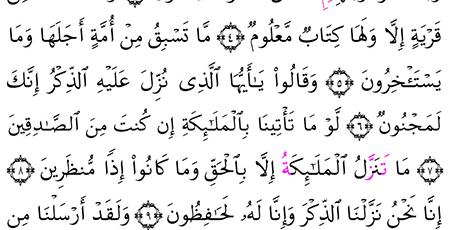 قَرْيَةٍ إِلَّا وَلَهَا كِتَابٌ مَّعْلُومٌ ﴿٤﴾ مَّا تَسْبِقُ مِنْ أُمَّةٍ أَجَلَهَا وَمَا
يَسْتَـْٔخِرُونَ ﴿٥﴾ وَقَالُوا۟ يَـٰٓأَيُّهَا ٱلَّذِى نُزِّلَ عَلَيْهِ ٱلذِّكْرُ إِنَّكَ
لَمَجْنُونٌ ﴿٦﴾ لَّوْ مَا تَأْتِينَا بِٱلْمَلَـٰٓئِكَةِ إِن كُنتَ مِنَ ٱلصَّـٰدِقِينَ
﴿٧﴾ مَا تَنَزَّلُ ٱلْمَلَـٰٓئِكَةُ إِلَّا بِٱلْحَقِّ وَمَا كَانُوٓا۟ إِذًا مُّنظَرِينَ ﴿٨﴾
إِنَّا نَحْنُ نَزَّلْنَا ٱلذِّكْرَ وَإِنَّا لَهُۥ لَحَـٰفِظُونَ ﴿٩﴾ وَلَقَدْ أَرْسَلْنَا مِن